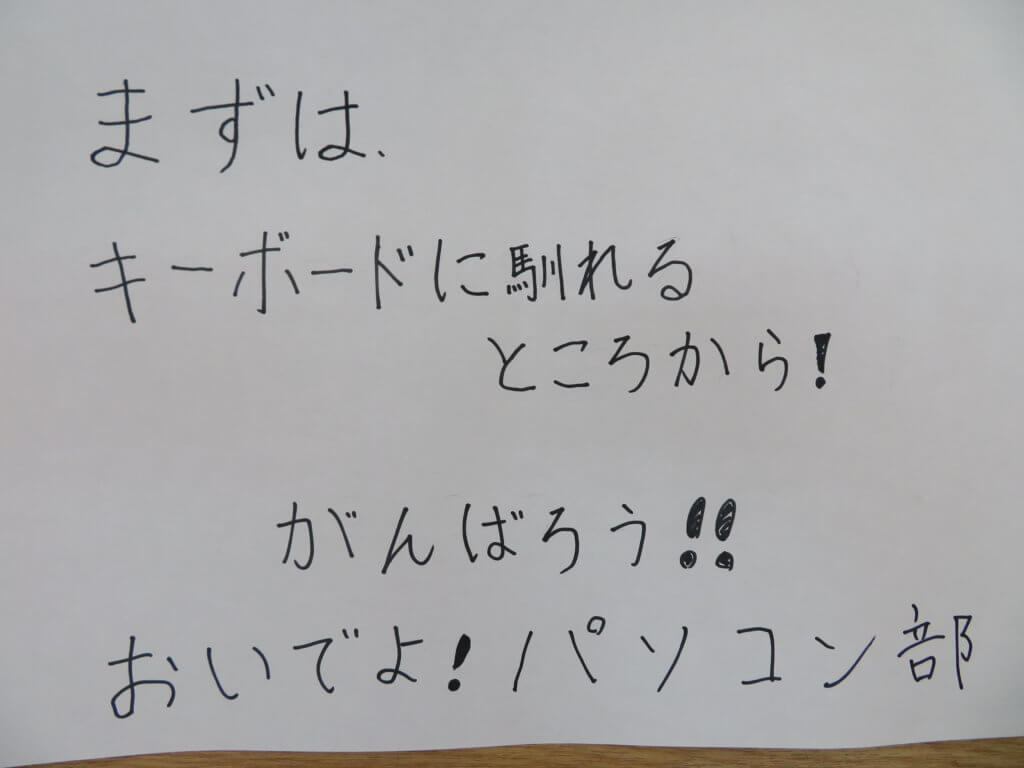 まずは、
キーボードに馴れる
ところから!
がんばろう!!
おいでよ!パソコン部